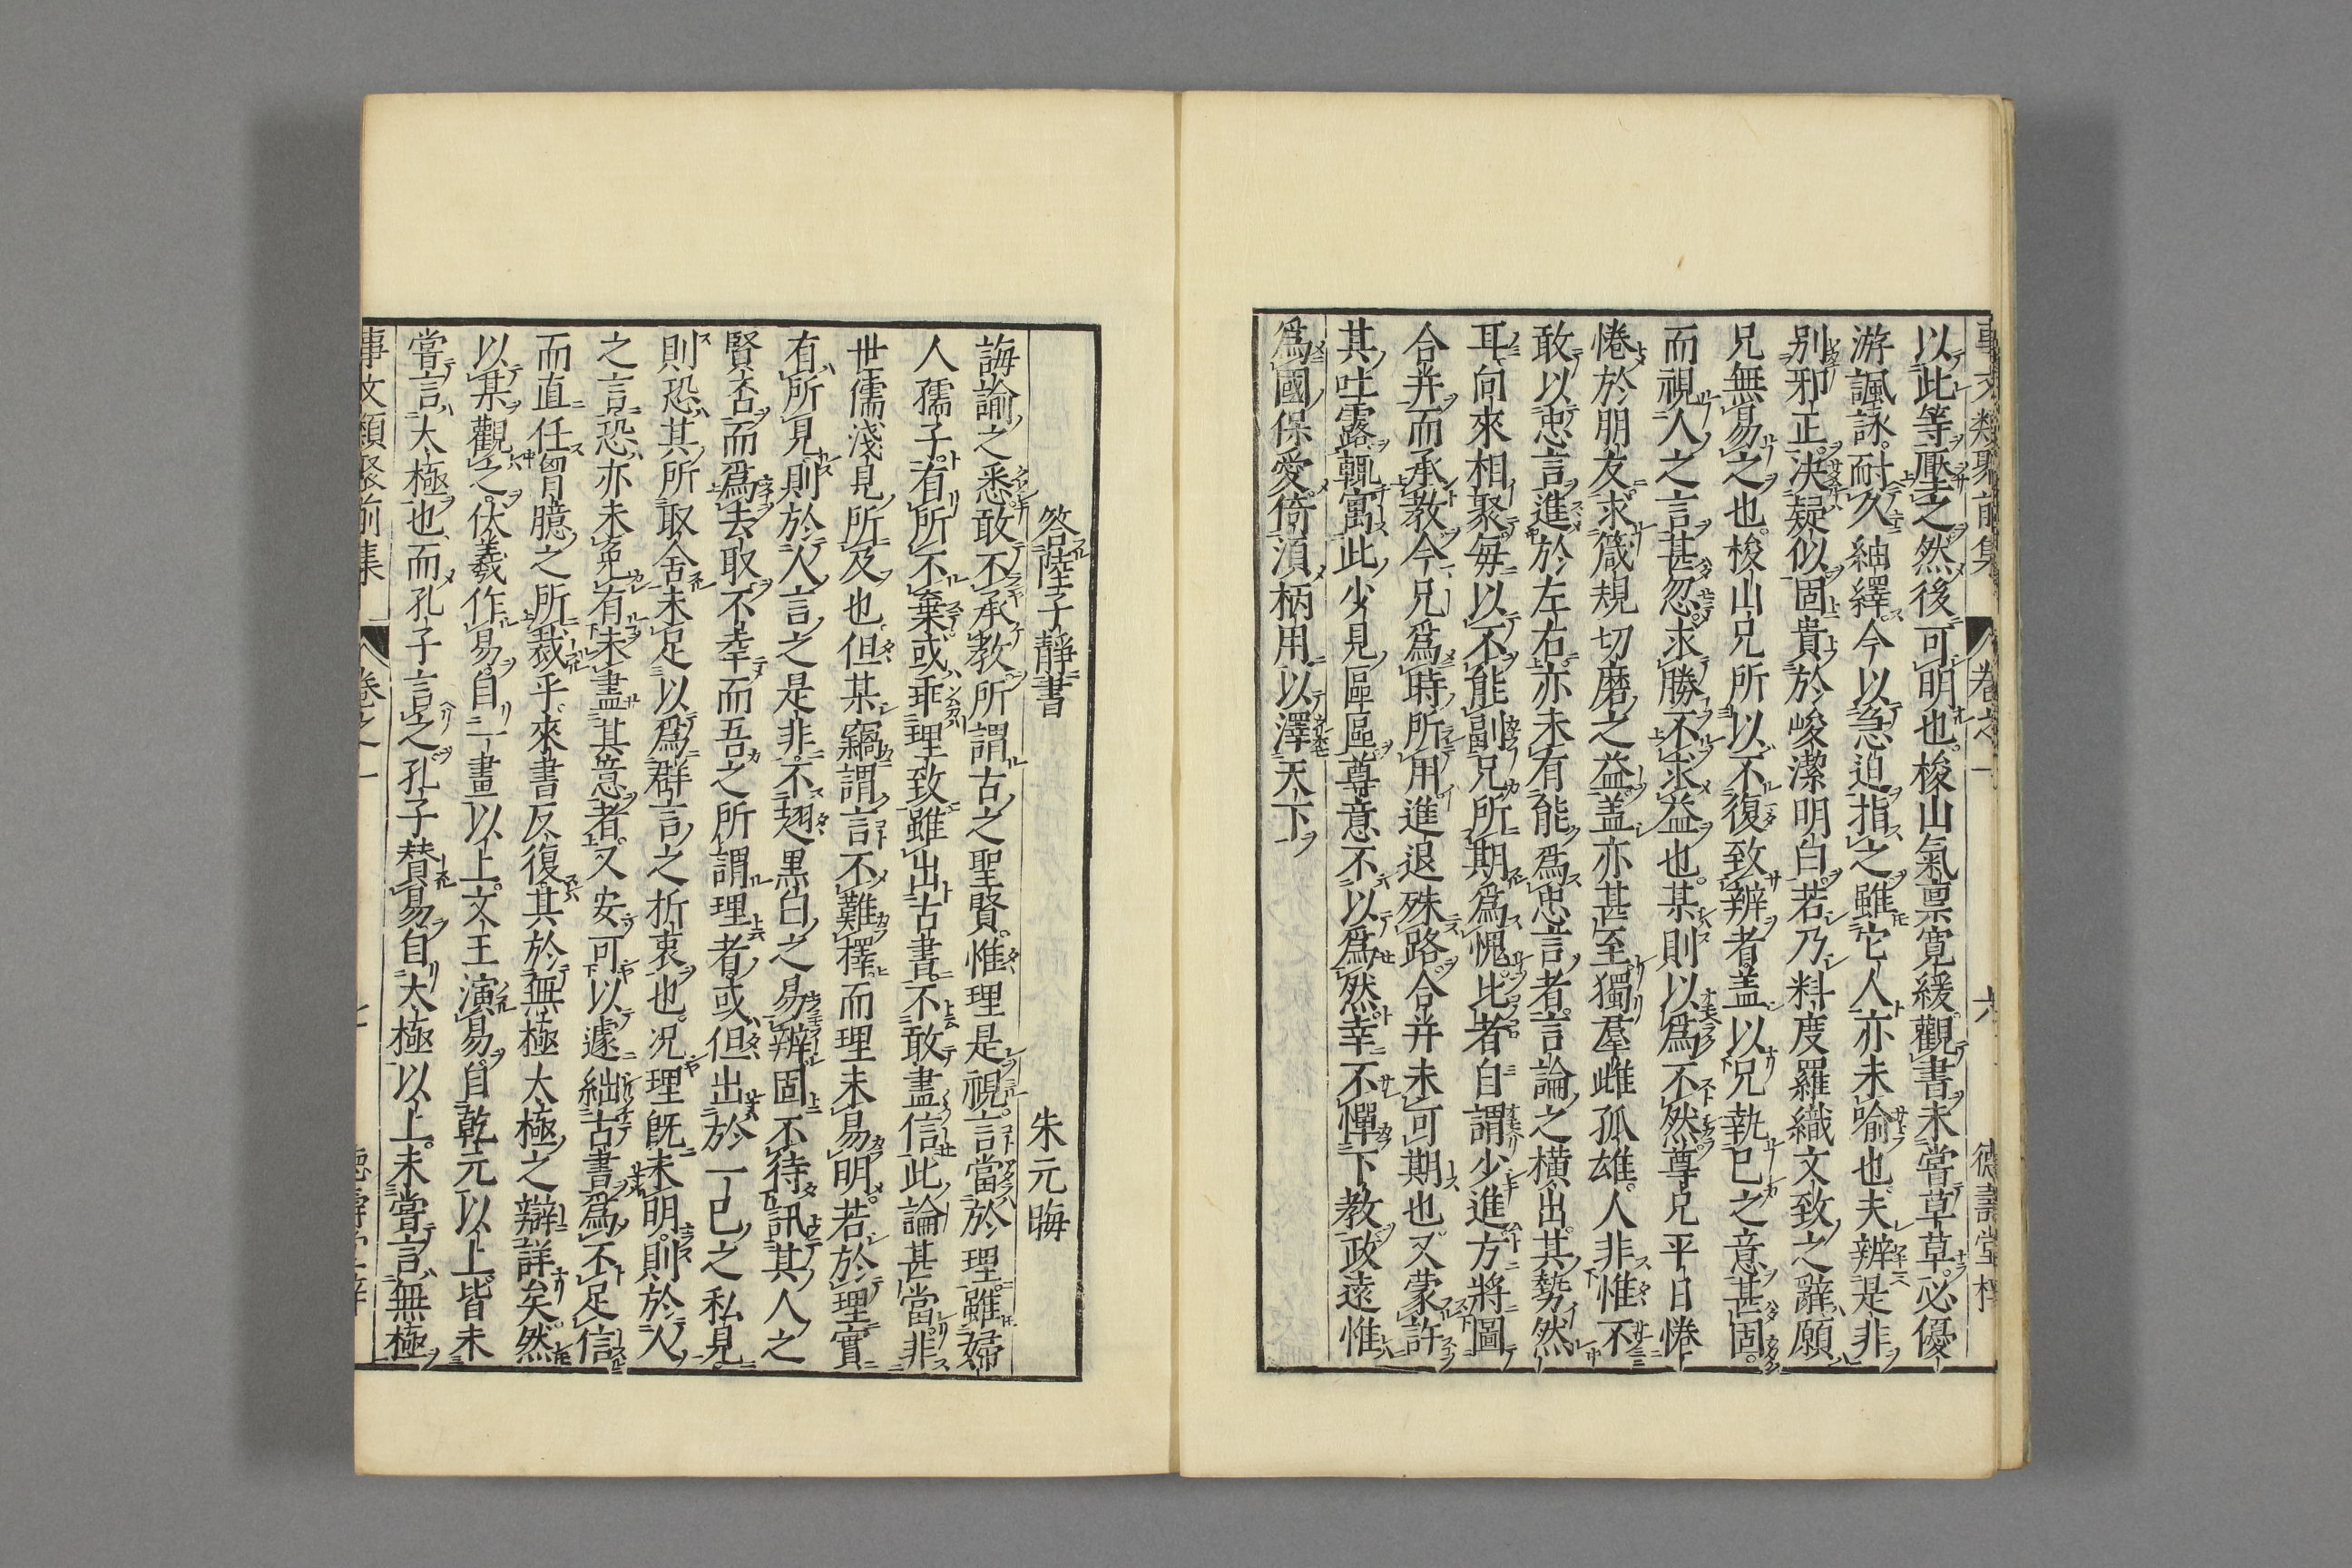 事文類聚前集 卷之一 六 德壽堂梓
以此等壓之然後可明也梭山氣禀寬緩觀書未嘗草草必優
游諷詠耐久紬繹今以急迫指之雖它人亦未喻也夫辨是非
別邪正決疑似固貴於峻潔明白若乃料度羅織文致之辭願
兄無易之也梭山兄所以不復致辨者盖以兄執己之意甚固
而視人之言甚忽求勝不求益也某則以為不然尊兄平日惓
惓於朋友求箴規切磨之益盖亦甚至獨羣雌孤雄人非惟不
敢以忠言進於左右亦未有能為忠言者言論之横出其勢然
耳向來相聚每以不能副兄所期為愧比者自謂少進方將圖
合并而承教今兄為時所用進退殊路合并未可期也又蒙許
其吐露輒寓此少見區區尊意不以為然幸不憚下教政遠惟
為國保愛倚湏柄用以澤天下
答陸子靜書 朱元晦
誨諭之悉敢不承教所謂古之聖賢惟理是視言當於理雖婦
人孺子有所不棄或乖理致雖出古書不敢盡信此論甚當非
世儒淺見所及也但某竊謂言不難擇而理未易明若於理實
有所見則於人言之是非不翅黒白之易辨固不待訊其人之
賢否而為去取不幸而吾之所謂理者或但出於一己之私見
則恐其所取舍未足以為群言之折衷也况理既未明則於人
之言恐亦未免有未盡其意者又安可以遽絀古書為不足信
而直任胷臆之所裁乎來書反復其於無極太極之辯詳矣然
以某觀之伏羲作易自一畫以上文王演易自乾元以上皆未
嘗言太極也而孔子言之孔子賛易自太極以上未嘗言無極
事文類聚前集 卷之一 七